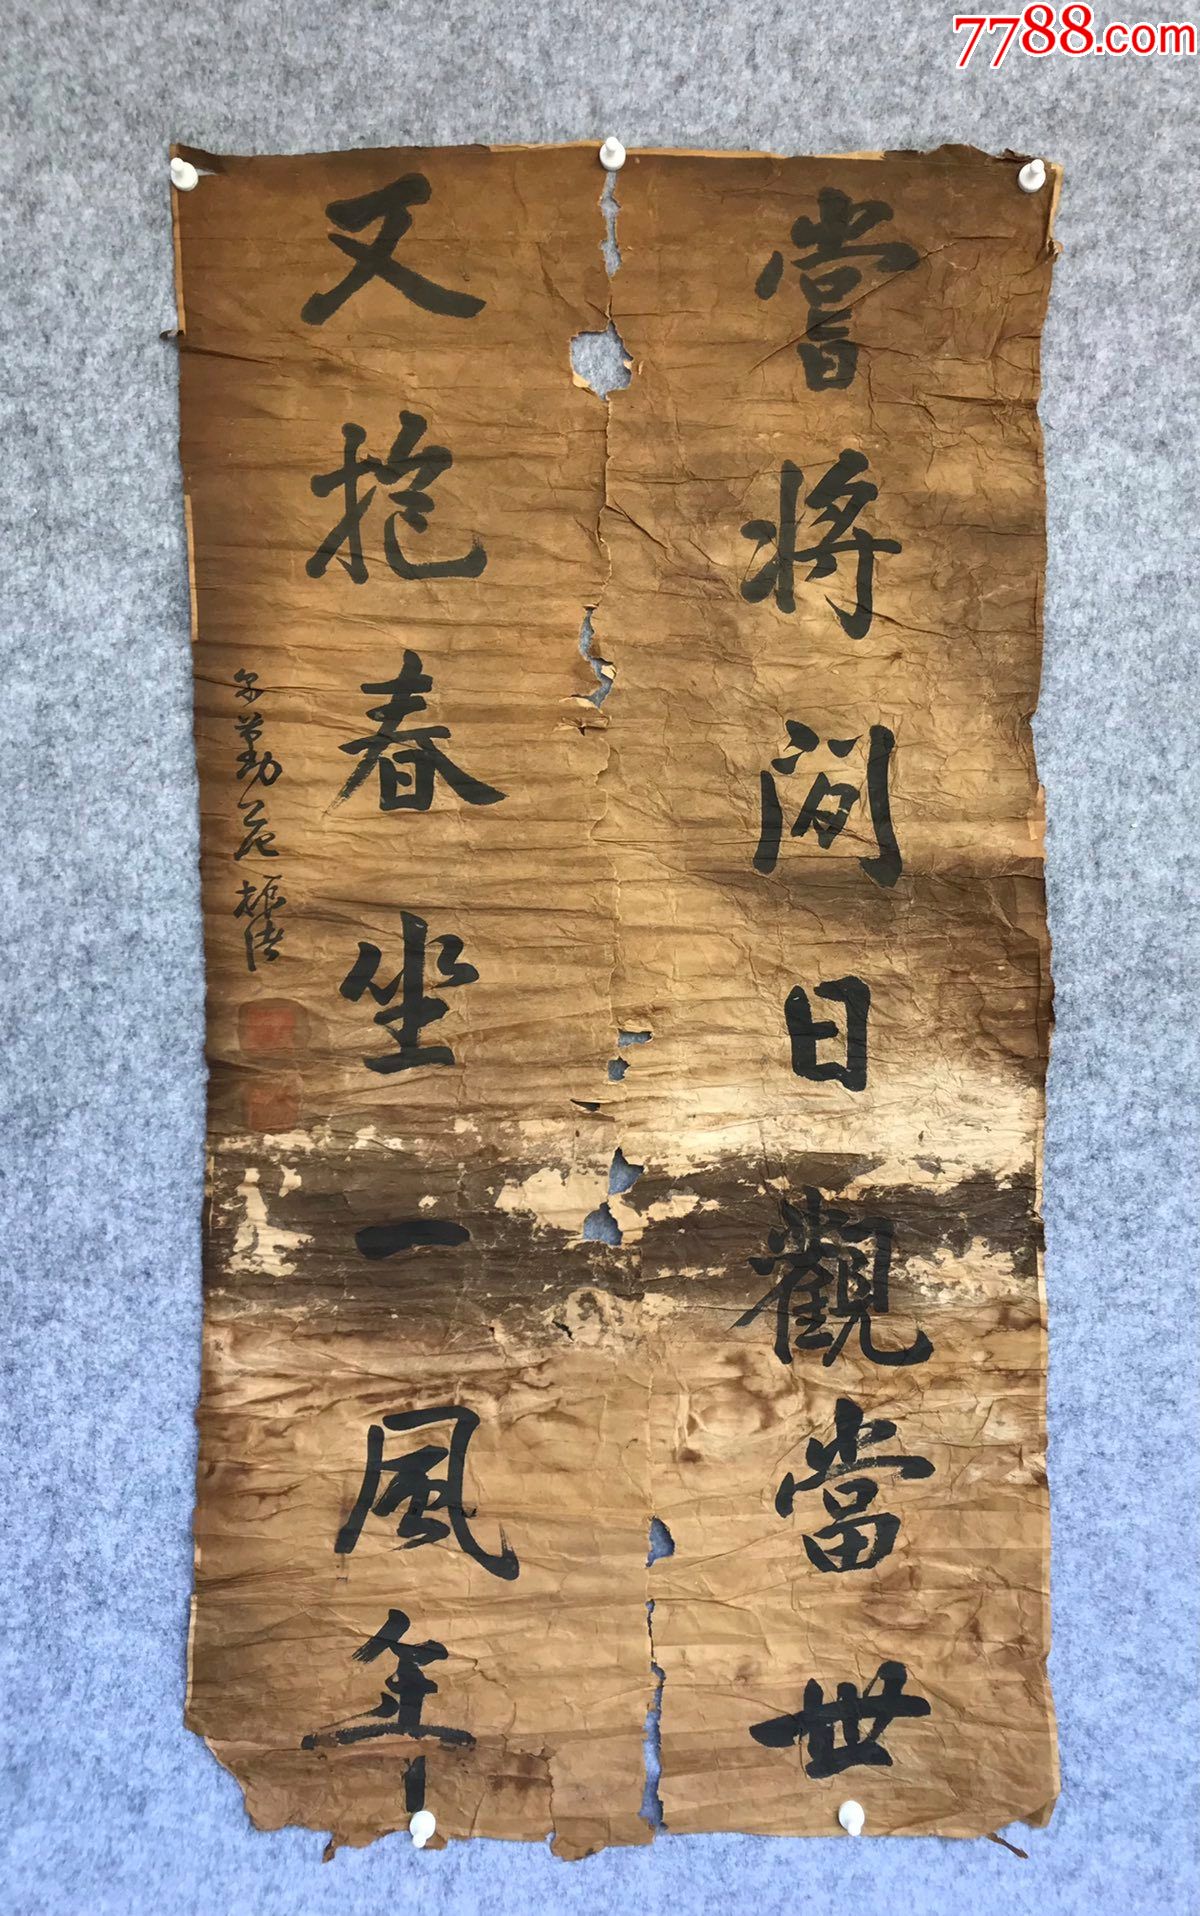 7788.com
嘗將閒日觀當世
又抱春坐一風年